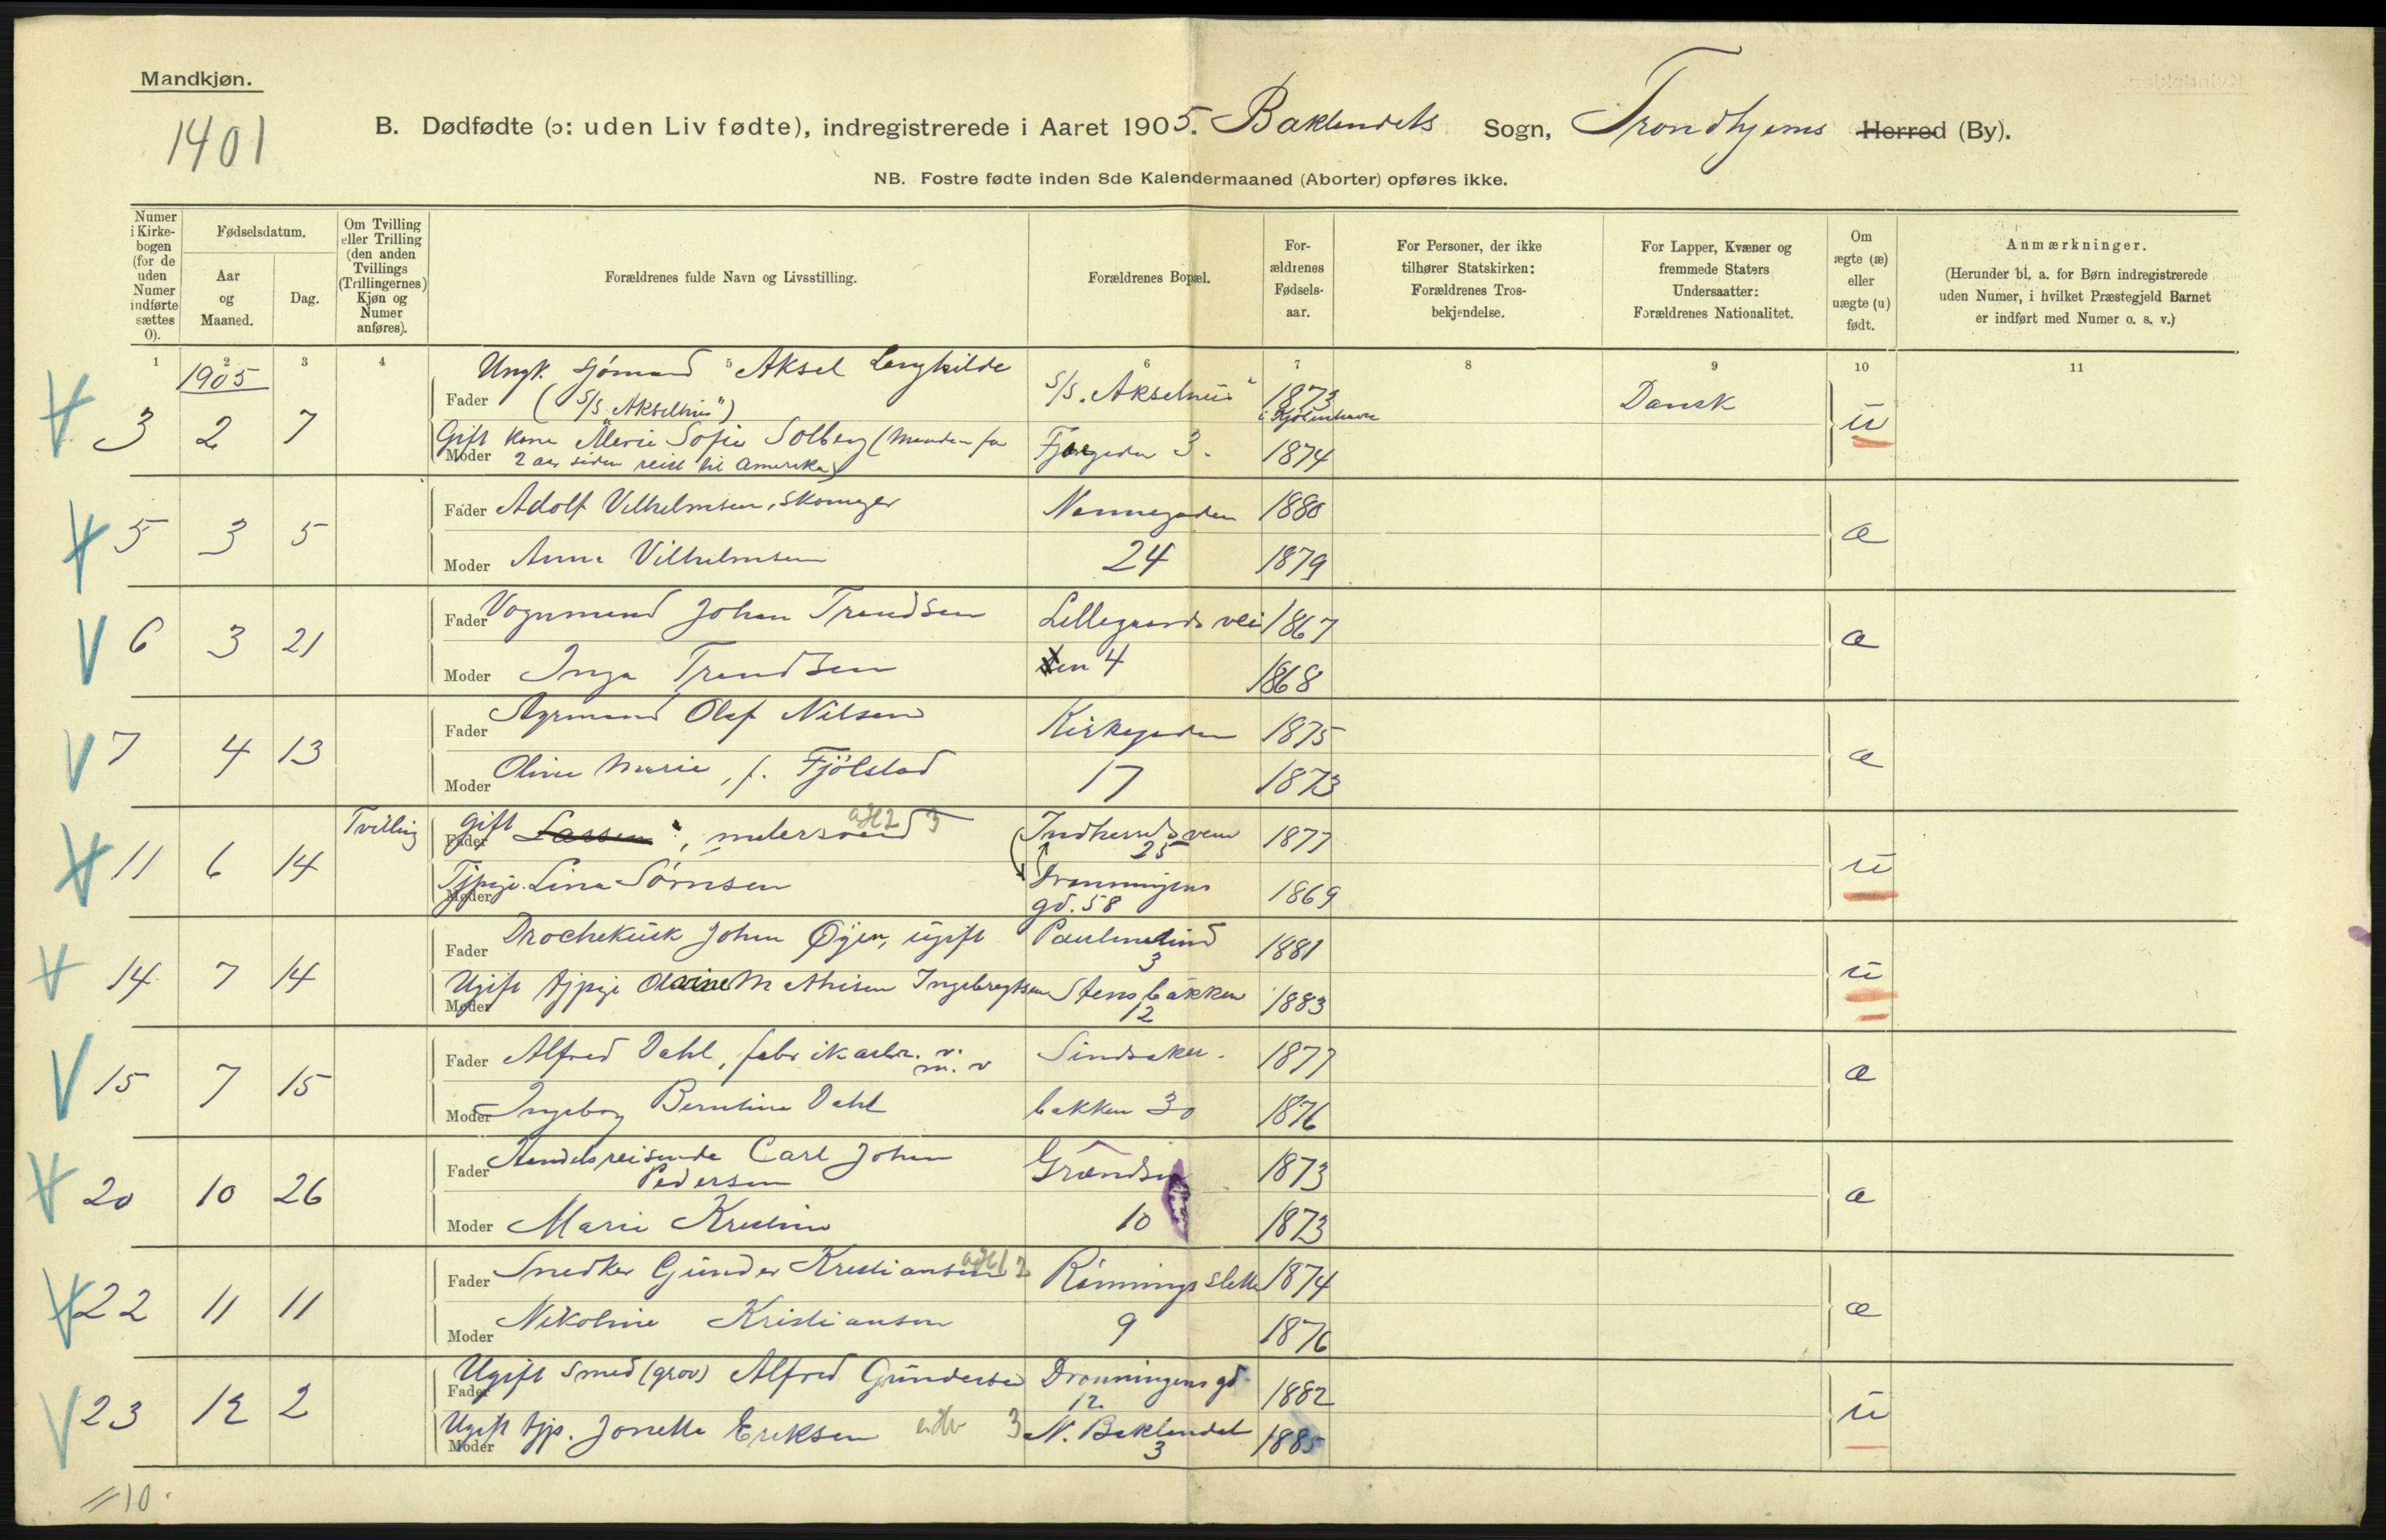 Mandkjøn.
1401
B. Dødfødte (ɔ: uden Liv fødte), indregistrerede i Aaret 1905. Baklandets Sogn, Trondhjems Herred (By).
NB. Fostre fødte inden 8de Kalendermaaned (Aborter) opføres ikke.
Numer i Kirkebogen (for de uden Numer indførte sættes 0).
Fødselsdatum.
Aar og Maaned.
Dag.
Om Tvilling eller Trilling (den anden Tvillings (Trillingernes) Kjøn og Numer anføres).
Forældrenes fulde Navn og Livsstilling.
Forældrenes Bopæl.
Forældrenes Fødselsaar.
For Personer, der ikke tilhører Statskirken: Forældrenes Trosbekjendelse.
For Lapper, Kvæner og fremmede Staters Undersaatter: Forældrenes Nationalitet.
Om ægte (æ) eller uægte (u) født.
Anmærkninger.
(Herunder bl. a. for Børn indregistrerede uden Numer, i hvilket Præstegjeld Barnet er indført med Numer o. s. v.)
1 2 3 4 5 6 7 8 9 10 11
1905
Ungk. sjømand Aksel Langkilde S/S. "Akselhus" 1873 Dansk
Fader (S/S "Akselhus") i Kjøbenhavn
3 2 7 u
Gift kone Marie Sofie Solberg (Manden for Fjæregaden 3. 1874
Moder 2 aar siden reist til Amerika)
Fader Adolf Vilhelmsen, skomager Nannegaden 1880
5 3 5 æ
Moder Anna Vilhelmsen 24 1879
Fader Vognmand Johan Trondsen Lillegaardsvei 1867
6 3 21 æ
Moder Inga Trondsen en 4 1868
Fader Styrmand Olaf Nilsen Kirkegaden 1875
7 4 13 æ
Moder Oline Marie, f. Fjölstad 17 1873
Tvilling Fader Gift Lassen, malersvend 3 Indherredsveien 25 1877
11 6 14 u
Moder Tjpige. Lina Sörnsen Dronningens gd. 58 1869
Fader Droschekusk Johan Øyen, ugift Paulinelund 3 1881
14 7 14 u
Moder Ugift tjpige Olavine Mathisen Ingebregtsen Stensbakken 12 1883
Fader Alfred Dahl, fabrikarb. v. m. v Sindsaker- 1877
15 7 15 æ
Moder Ingeborg Berntine Dahl bakken 30 1876
Fader Handelsreisende Carl Johan Pedersen Grændsen 1873
20 10 26 æ
Moder Marie Kristine 10 1873
Fader Snedker Gunder Kristiansen 2 Rønningsletta 1874
22 11 11 æ
Moder Nikoline Kristiansen 9 1876
Fader Ugift Smed (grov) Alfred Gundersen Dronningens gd. 12 1882
23 12 2 u
Moder Ugift tjp. Jonetta Eriksen 3 N. Baklandet 3 1885
//10.